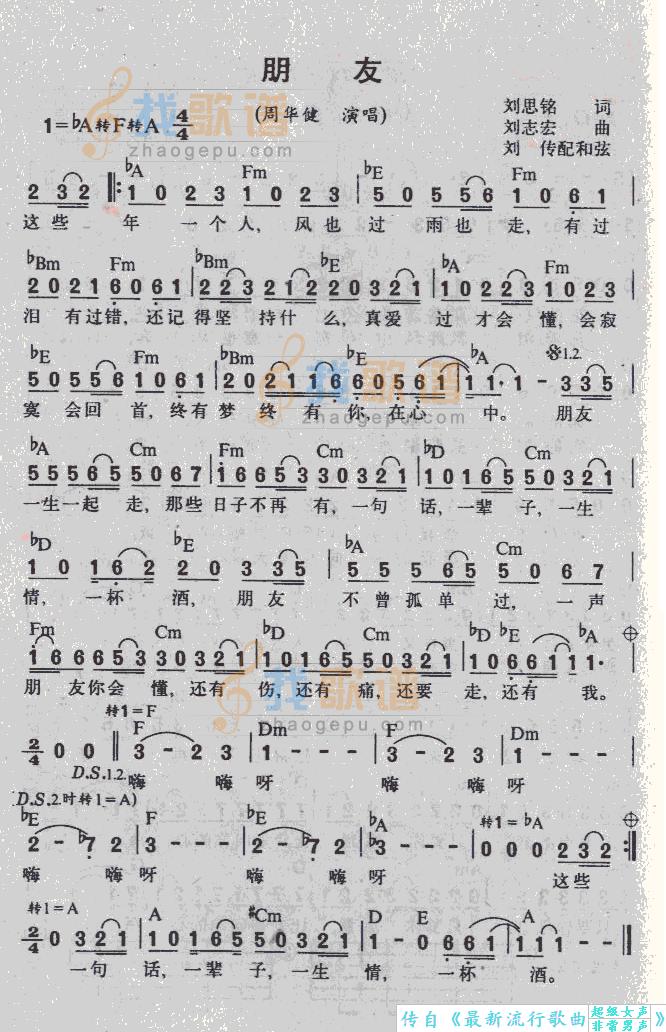 朋 友
1=♭A转F转A 4/4
(周华健 演唱)
刘思铭 词
刘志宏 曲
刘 传配和弦
找歌谱
zhaogepu.com
♭A Fm ♭E Fm
2 3 2 ‖: 1 0 2 3 1 0 2 3 | 5 0 5 5 5 6 1 0 6 1 |
这些 年 一个人, 风也过 雨也走, 有过
♭Bm Fm ♭Bm ♭E ♭A Fm
2 0 2 1 6 0 6 1 | 2 2 3 2 1 2 2 0 3 2 1 | 1 0 2 2 3 1 0 2 3
泪 有过错, 还记得坚 持什么, 真爱 过才会 懂, 会寂
♭E Fm ♭Bm ♭E ♭A 1.2.
5 0 5 5 5 6 1 0 6 1 | 2 0 2 1 1 6 6 0 5 6 1 | 1 1 1· - 3 3 5
寞 会回 首, 终有梦 终有 你, 在心 中。 朋友
♭A Cm Fm Cm ♭D
5 5 5 6 5 5 0 6 7 | 1 6 6 5 3 3 0 3 2 1 | 1 0 1 6 5 5 0 3 2 1
一生一起 走, 那些 日子不再 有, 一句 话, 一辈 子, 一生
♭D ♭E ♭A Cm
1 0 1 6 2 2 0 3 3 5 | 5 5 5 6 5 5 0 6 7
情, 一杯 酒, 朋友 不曾孤单 过, 一声
Fm Cm ♭D ♭D ♭E ♭A
1 6 6 6 5 3 3 0 3 2 1 | 1 0 1 6 5 5 0 3 2 1 | 1 0 6 6 1 1 1·
朋 友你会 懂, 还有 伤, 还有 痛, 还要 走, 还有 我。
转1=F
F Dm F Dm
2/4 0 0 ‖ 3 - 2 3 | 1 - - - | 3 - 2 3 | 1 - - -
D.S.1.2. 嗨 嗨呀 嗨 嗨呀
D.S.2.时转1=A)
♭E F ♭E ♭A 转1=♭A
2 - ♭7 2 | 3 - - - | 2 - ♭7 2 | ♭3 - - - | 0 0 0 2 3 2 :‖
嗨 嗨呀 嗨 嗨呀 这些
转1=A A ♯Cm D E A
2/4 0 3 2 1 | 1 0 1 6 5 5 0 3 2 1 | 1 - 0 6 6 1 | 1 1 1 - - ‖
一句 话, 一辈 子, 一生 情, 一杯 酒。
传自《最新流行歌曲
超级女声
非常男声